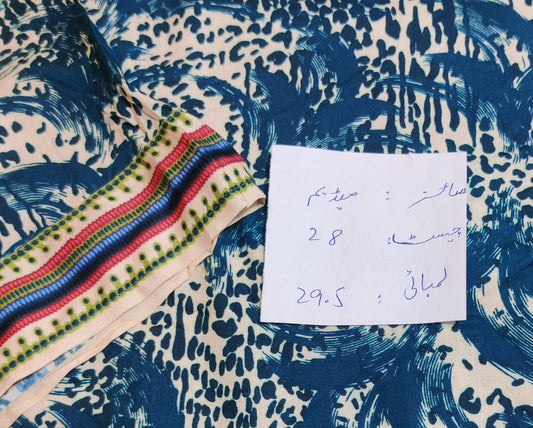 سائز : میڈیم
چیسٹ : 28
لمبائی : 29.5